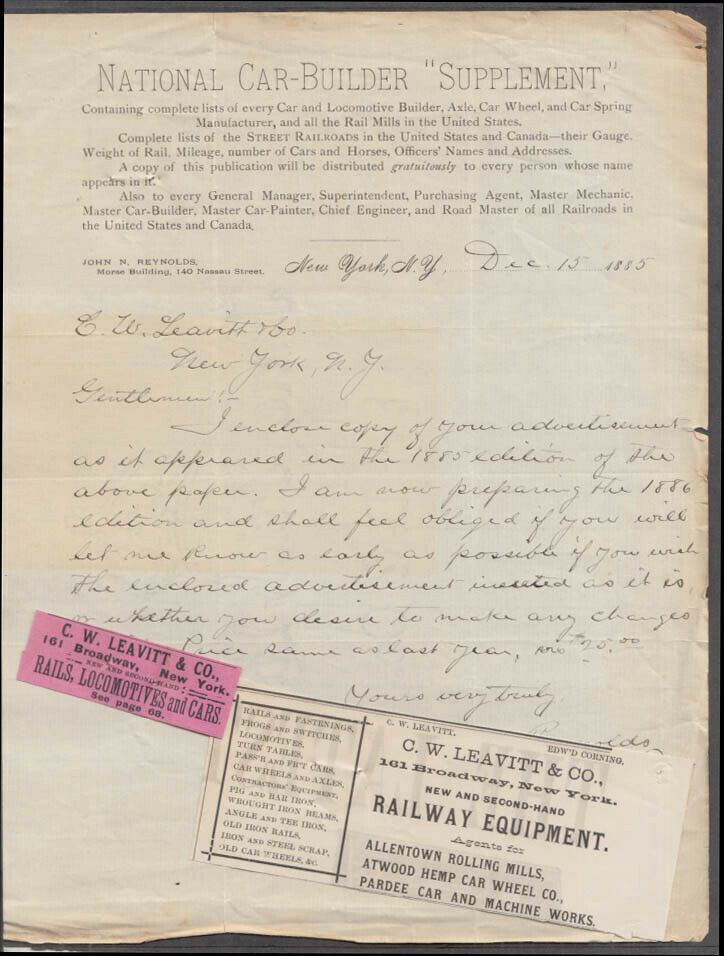 NATIONAL CAR-BUILDER "SUPPLEMENT,"
Containing complete lists of every Car and Locomotive Builder, Axle, Car Wheel, and Car Spring
Manufacturer, and all the Rail Mills in the United States.
Complete lists of the STREET RAILROADS in the United States and Canada—their Gauge,
Weight of Rail, Mileage, number of Cars and Horses, Officers' Names and Addresses.
A copy of this publication will be distributed gratuitously to every person whose name
appears in it.
Also to every General Manager, Superintendent, Purchasing Agent, Master Mechanic,
Master Car-Builder, Master Car-Painter, Chief Engineer, and Road Master of all Railroads in
the United States and Canada.
JOHN N. REYNOLDS,
Morse Building, 140 Nassau Street.
New York, N.Y., Dec. 15 1885
C. W. Leavitt & Co.
New York, N.Y.
Gentlemen:-
I enclose copy of your advertisement
as it appeared in the 1885 edition of the
above paper. I am now preparing the 1886
edition and shall feel obliged if you will
let me know as early as possible if you wish
the enclosed advertisement inserted as it is,
or whether you desire to make any changes
Price same as last year, $25.00
Yours very truly
C. W. LEAVITT & CO.,
161 Broadway, New York.
NEW AND SECOND-HAND
RAILS, LOCOMOTIVES and CARS.
See page 68.
RAILS AND FASTENINGS,
FROGS AND SWITCHES,
LOCOMOTIVES,
TURN TABLES,
PASS'R AND FR'T CARS,
CAR WHEELS AND AXLES,
CONTRACTORS' EQUIPMENT,
PIG AND BAR IRON,
WROUGHT IRON BEAMS,
ANGLE AND TEE IRON,
OLD IRON RAILS,
IRON AND STEEL SCRAP,
OLD CAR WHEELS, &C.
C. W. LEAVITT. EDW'D CORNING.
C. W. LEAVITT & CO.,
161 Broadway, New York.
NEW AND SECOND-HAND
RAILWAY EQUIPMENT.
Agents for
ALLENTOWN ROLLING MILLS,
ATWOOD HEMP CAR WHEEL CO.,
PARDEE CAR AND MACHINE WORKS.